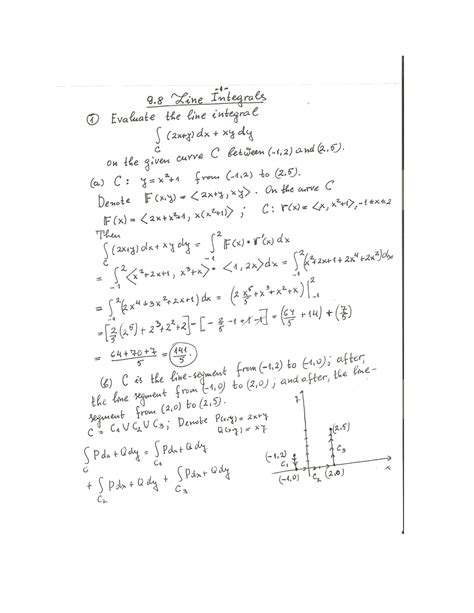 -1-
9.8 Line Integrals
① Evaluate the line integral
∫_C (2x+y)dx + xy dy
on the given curve C between (-1,2) and (2,5).
(a) C: y=x²+1 from (-1,2) to (2,5).
Denote F(x,y) = <2x+y, xy>. On the curve C
F(x) = <2x+x²+1, x(x²+1)>; C: r(x)=<x, x²+1>, -1≤x≤2
Then
∫_C (2x+y)dx + xy dy = ∫_{-1}^{2} F(x)•r'(x)dx
= ∫_{-1}^{2} <x²+2x+1, x³+x> • <1, 2x>dx = ∫_{-1}^{2} (x²+2x+1+2x⁴+2x²)dx
= ∫_{-1}^{2} (2x⁴+3x²+2x+1)dx = (2 x⁵/5 + x³+x²+x)|_{-1}^{2}
= [2/5 (2⁵) + 2³+2²+2] - [-2/5 -1+1-1] = (64/5 + 14) + (7/5)
= (64+70+7)/5 = 141/5
(b) C is the line-segment from (-1,2) to (-1,0); after,
the line segment from (-1,0) to (2,0); and after, the line-
segment from (2,0) to (2,5).
C = C₁∪C₂∪C₃; Denote P(x,y) = 2x+y
Q(x,y) = xy
∫_C Pdx+Qdy = ∫_{C₁} Pdx+Qdy
+ ∫_{C₂} Pdx+Qdy + ∫_{C₃} Pdx+Qdy
y
(2,5)
(-1,2)
C₁
C₃
x
(-1,0)
C₂
(2,0)